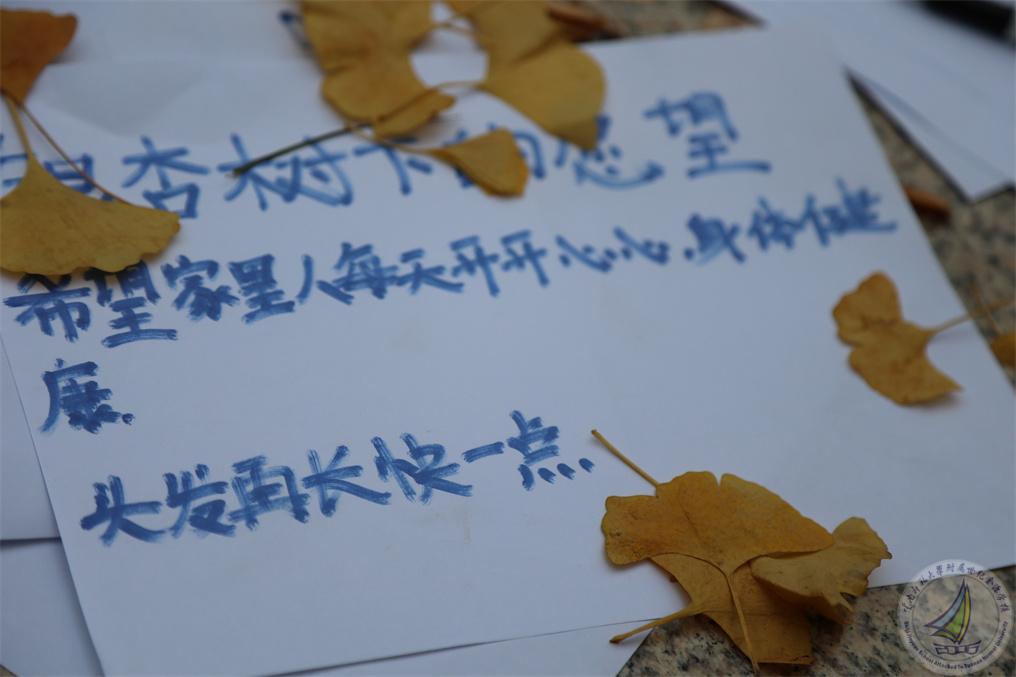 杏树下的愿望
希望家里人每天开开心心.身体健
康.
头发再长快一点..